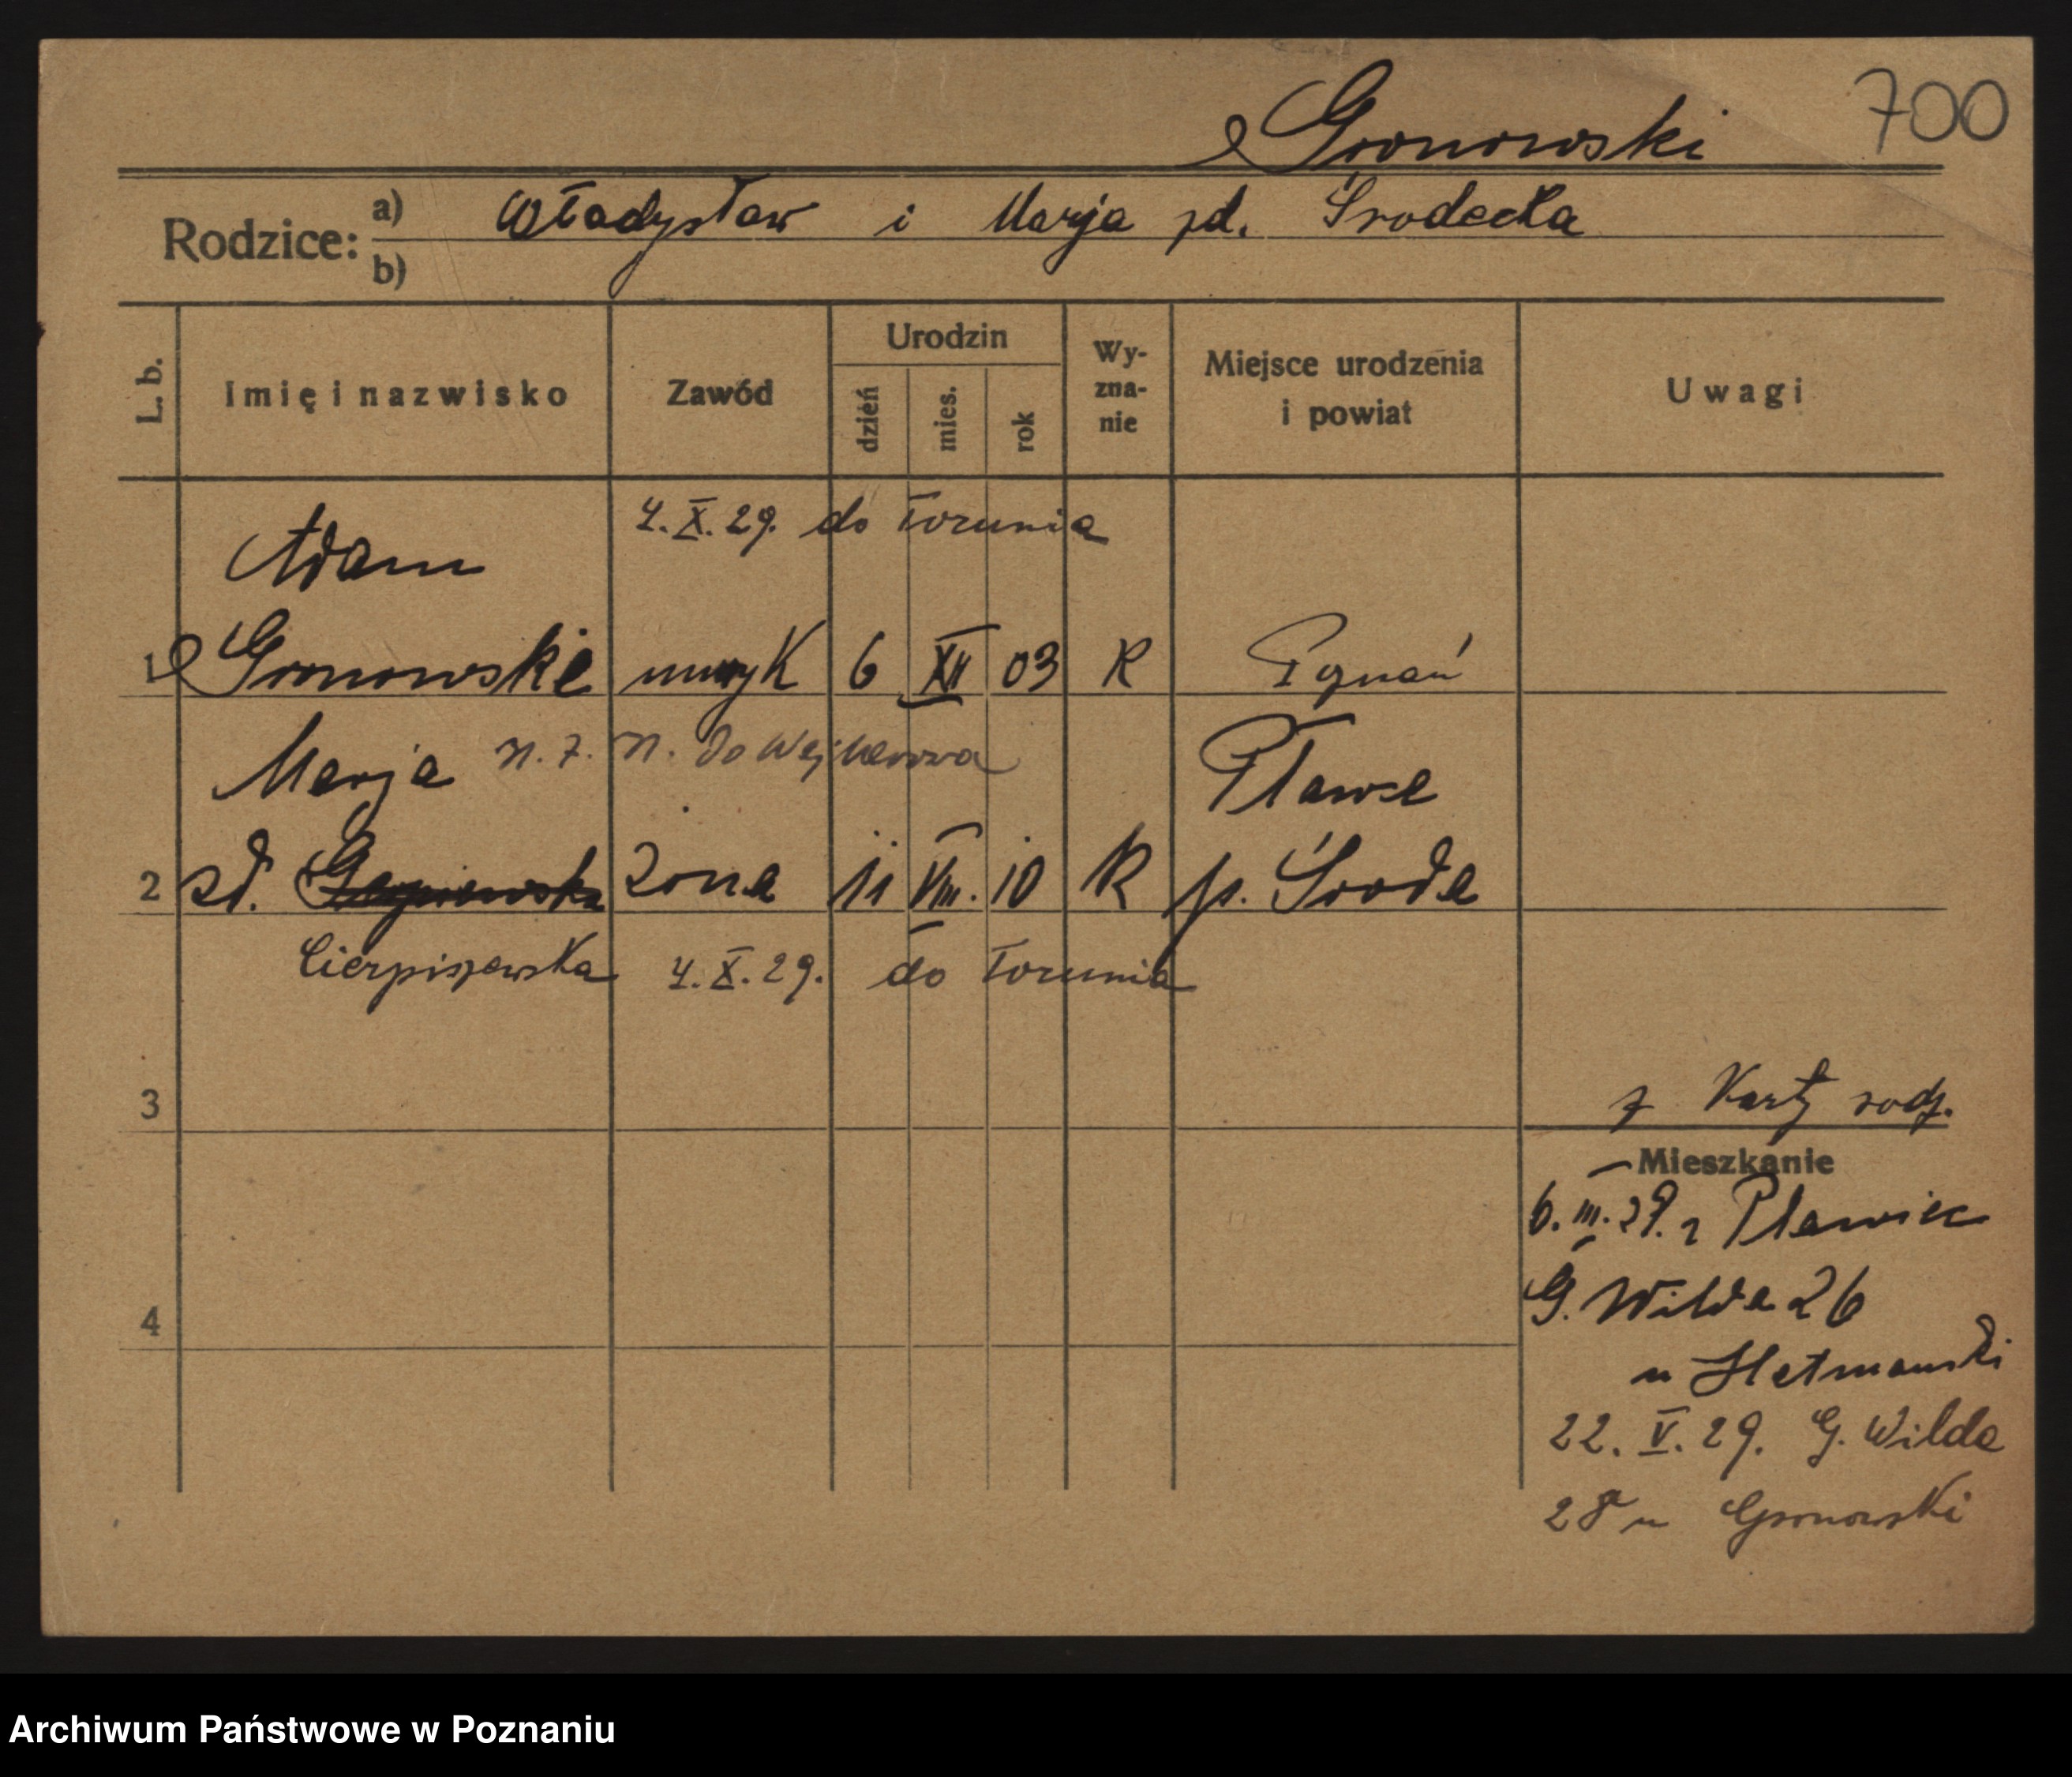 Gronowski 700
Rodzice: a) Władysław i Marja zd. Środecka
b)
L. b. Imię i nazwisko Zawód Urodzin dzień mies. rok Wy-zna-nie Miejsce urodzenia i powiat Uwagi
4. X. 29. do Torunia
Adam
1 Gronowski muzyk 6 XII 03 K Poznań
Marja do Wejherowa Pławce
2 zd. żona 11 VIII. 10 K p. Środa
Cierpiszewska 4. X. 29. do Torunia
3 z Karty rodz.
Mieszkanie
6. III. 29. z Pławiec
G. Wilda 26
4
u Hetmański
22. V. 29. G. Wilda
28 u Gronowski
Archiwum Państwowe w Poznaniu